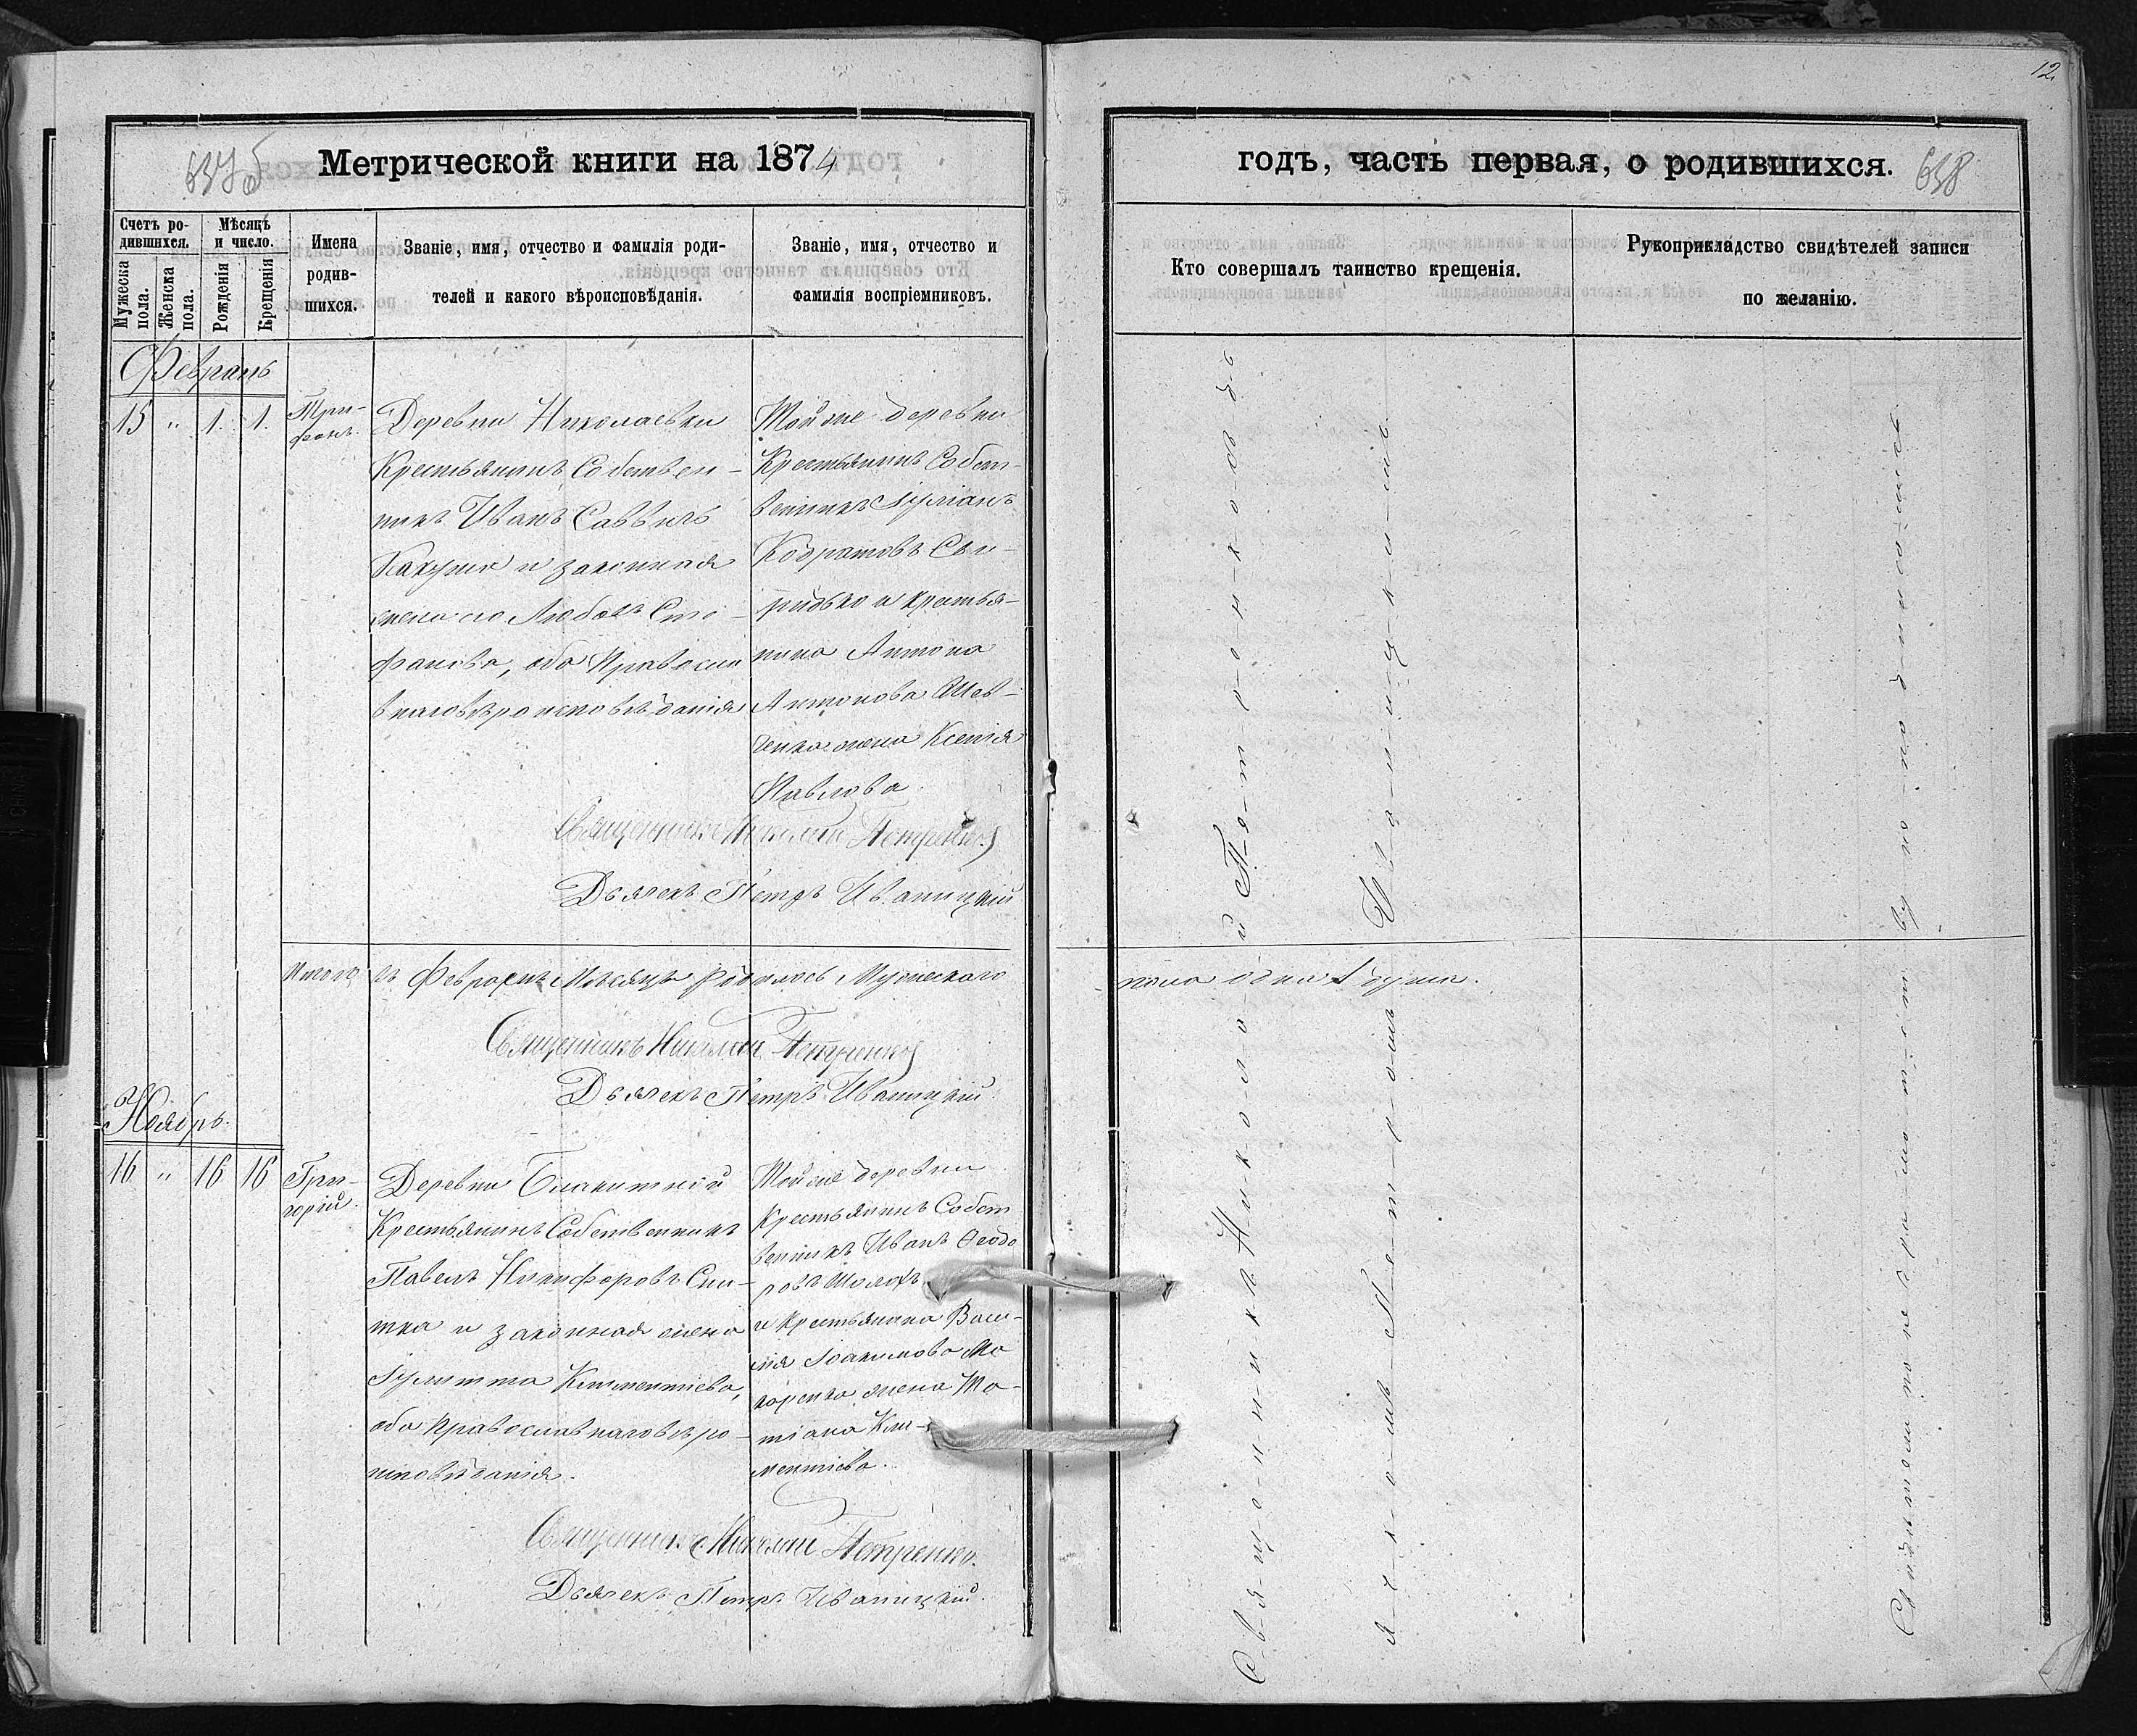 12
Метрической книги на 1874
годъ, часть первая, о родившихся.
638
Счетъ ро-
дившихся.
Мѣсяцъ
и число.
Мужеска
пола.
Женска
пола.
Рожденія
Крещенія
Имена
родив-
шихся.
Званіе, имя, отчество и фамилія роди-
телей и какого вѣроисповѣданія.
Званіе, имя, отчество и
фамилія воспріемниковъ.
Кто совершалъ таинство крещенія.
Рукоприкладство свидѣтелей записи
по желанію.
Февраль
15 " 1. 1.
Три-
фонъ.
Деревни Николаевки
Крестьянинъ Собствен-
никъ Иванъ Саввичъ
и законная
жена его Любовь Сте-
фанова, оба Православ
наговѣроисповѣданія
Тойже деревни
Крестьянинъ Собст-
венникъ Іуліанъ
Кодратовъ Сви-
ридько и крестья-
нина Антона
Антонова Шев-
ченка жена Ксенія
Павлова.
Священникъ Николай Петренко
Дьячекъ Петръ Иваницкій
Итого въ Февралѣ Мѣсяцѣ родилось Мужескаго
пола одна 1 душа.
Священникъ Николай Петренко
Дьячекъ Петръ Иваницкій.
Ноябрь.
16 " 16 16
Гри-
горій.
Деревни Блакитной
Крестьянинъ Собственникъ
Павелъ Никифоровъ Сни-
тка и законная жена
Іулитта Климентіева,
оба Православнаговѣро-
исповѣданія.
Тойже деревни
Крестьянинъ Собст
венникъ Иванъ Ѳеодо
ровъ Шолохъ
и крестьянина Васи-
лія Іоакимова Ма
каренка жена Та-
тіана Кли-
ментіева.
Священникъ Николай Петренко.
Дьячекъ Петръ Иваницкій.
Священникъ Николай съ
Дьячкомъ Петромъ Иваницкимъ.